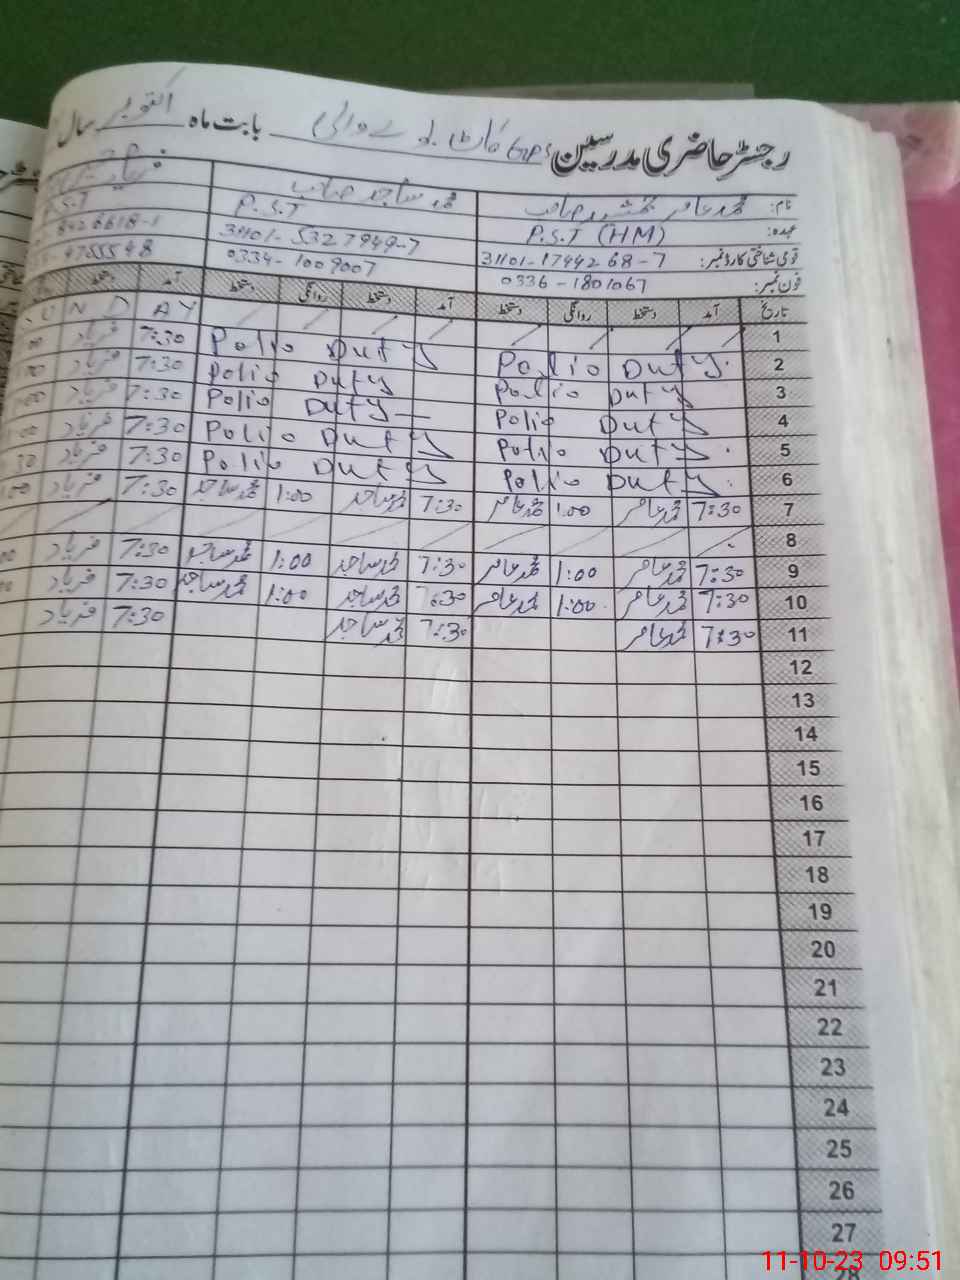 رجسٹر حاضری مدرسین GPS بابت ماہ اکتوبر سال
نام: محمد عامر صاحب محمد ساجد صاحب
عہدہ: P.S.T (HM) P.S.T P.S.T
قومی شناختی کارڈ نمبر: 31101-1744268-7 31101-5327949-7
فون نمبر: 0336-1801067 0334-1009007
تاریخ آمد دستخط روانگی دستخط آمد دستخط روانگی دستخط آمد دستخط
1 SUNDAY
2 Polio Duty. Polio Duty 7:30 فریاد
3 Polio Duty Polio Duty 7:30 فریاد
4 Polio Duty Polio Duty 7:30 فریاد
5 Polio Duty. Polio Duty 7:30 فریاد
6 Polio Duty. Polio Duty 7:30 فریاد
7 7:30 محمد عامر 1:00 محمد عامر 7:30 محمد ساجد 1:00 محمد ساجد 7:30 فریاد
8
9 7:30 محمد عامر 1:00 محمد عامر 7:30 محمد ساجد 1:00 محمد ساجد 7:30 فریاد
10 7:30 محمد عامر 1:00 محمد عامر 7:30 محمد ساجد 1:00 محمد ساجد 7:30 فریاد
11 7:30 محمد عامر 7:30 محمد ساجد 7:30 فریاد
12
13
14
15
16
17
18
19
20
21
22
23
24
25
26
27
28
11-10-23 09:51